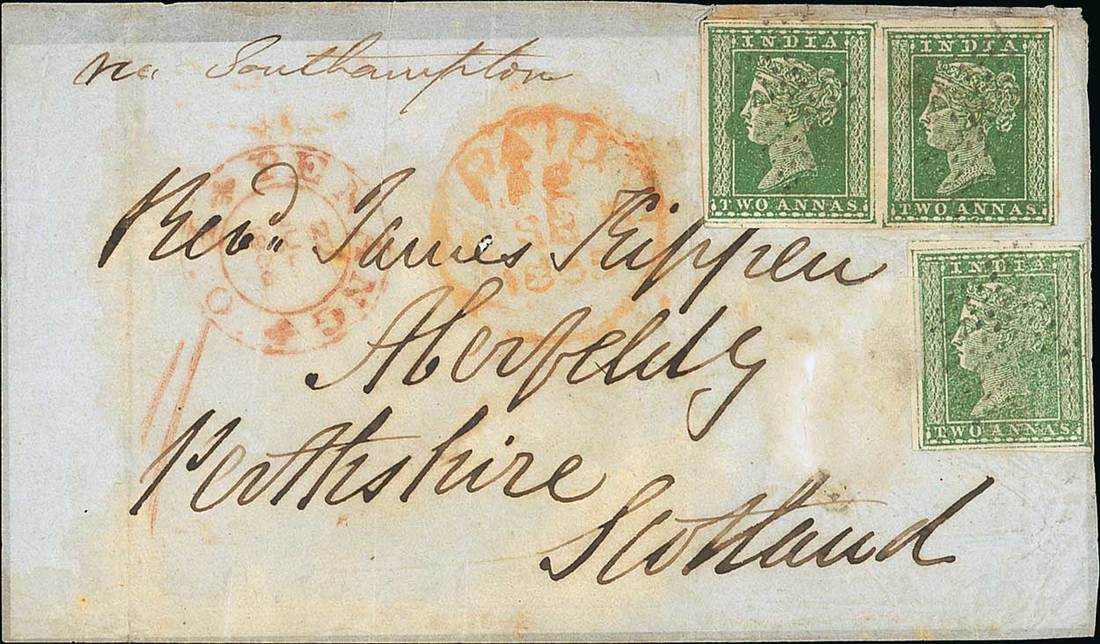 via Southampton
INDIA
TWO ANNAS.
INDIA
TWO ANNAS.
PAID
1855
Revd. James Kippen
Aberfeldy
Perthshire
Scotland
INDIA
TWO ANNAS.